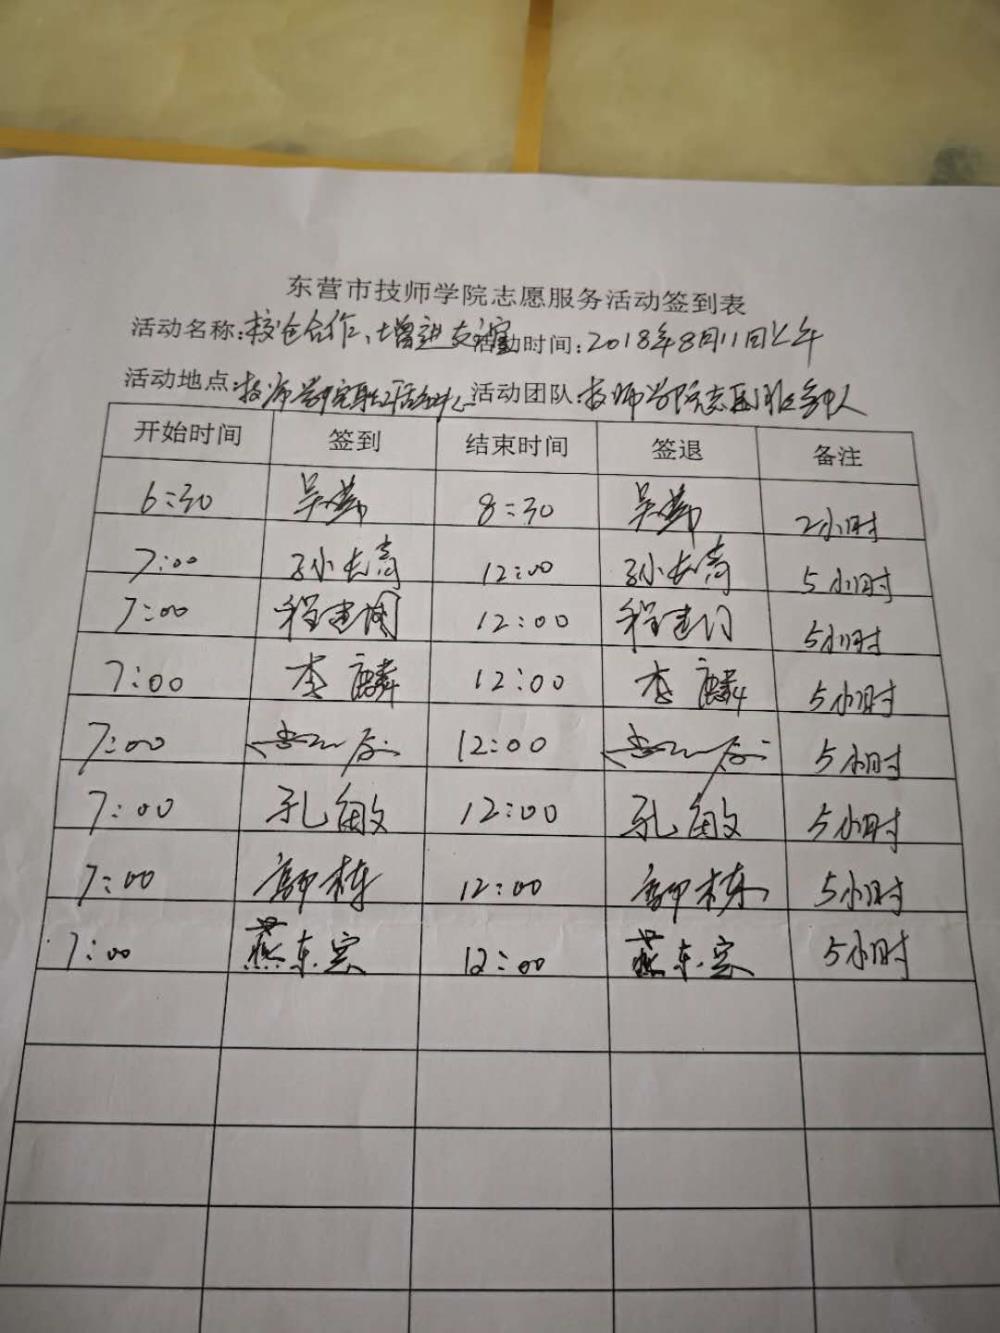 东营市技师学院志愿服务活动签到表
活动名称:校仓合作、增进友谊 活动时间:2018年8月11日上午
活动地点:技师学院职工活动中心 活动团队:技师学院志愿服务
开始时间 签到 结束时间 签退 备注
6:30 吴 8:30 吴 2小时
7:00 孙长 12:00 孙长 5小时
7:00 程建国 12:00 程建国 5小时
7:00 李麟 12:00 李麟 5小时
7:00 12:00 5小时
7:00 孔敏 12:00 孔敏 5小时
7:00 栋 12:00 栋 5小时
7:00 燕东宾 12:00 燕东宾 5小时